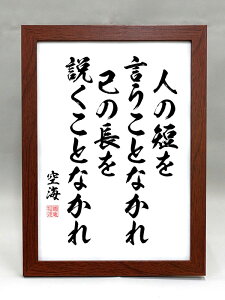 人の短を
言うことなかれ
己の長を
説くことなかれ
空海